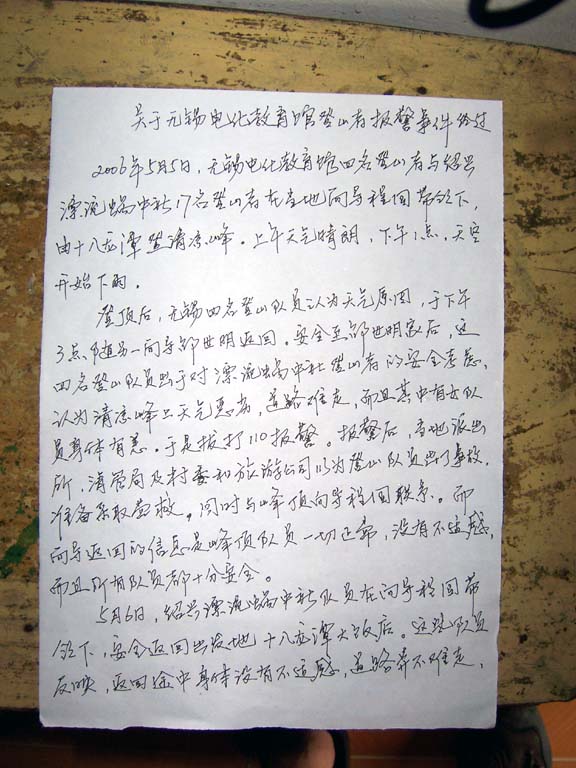 关于无锡电化教育馆登山者报警事件经过
2006年5月5日，无锡电化教育馆四名登山者与绍兴
漂流蜗牛社17名登山者在当地向导程国带领下，
由十八龙潭登清凉峰。上午天气晴朗，下午1点，天空
开始下雨。
登顶后，无锡四名登山队员认为天气原因，于下午
3点随另一向导邵世明返回。安全至邵世明家后，这
四名登山队员出于对漂流蜗牛社登山者的安全考虑，
认为清凉峰上天气恶劣，道路难走，而且其中有女队
员身体有恙。于是拔打110报警。报警后，当地派出
所，海管局及村委和旅游公司以为登山队员出了事故，
准备采取营救。同时与峰顶向导程国联系。而
向导返回的信息是峰顶队员一切正常，没有不适感，
而且所有队员都十分安全。
5月6日，绍兴漂流蜗牛社队员在向导程国带
领下，安全返回出发地十八龙潭大饭店。这些队员
反映，返回途中身体没有不适感，道路并不难走，